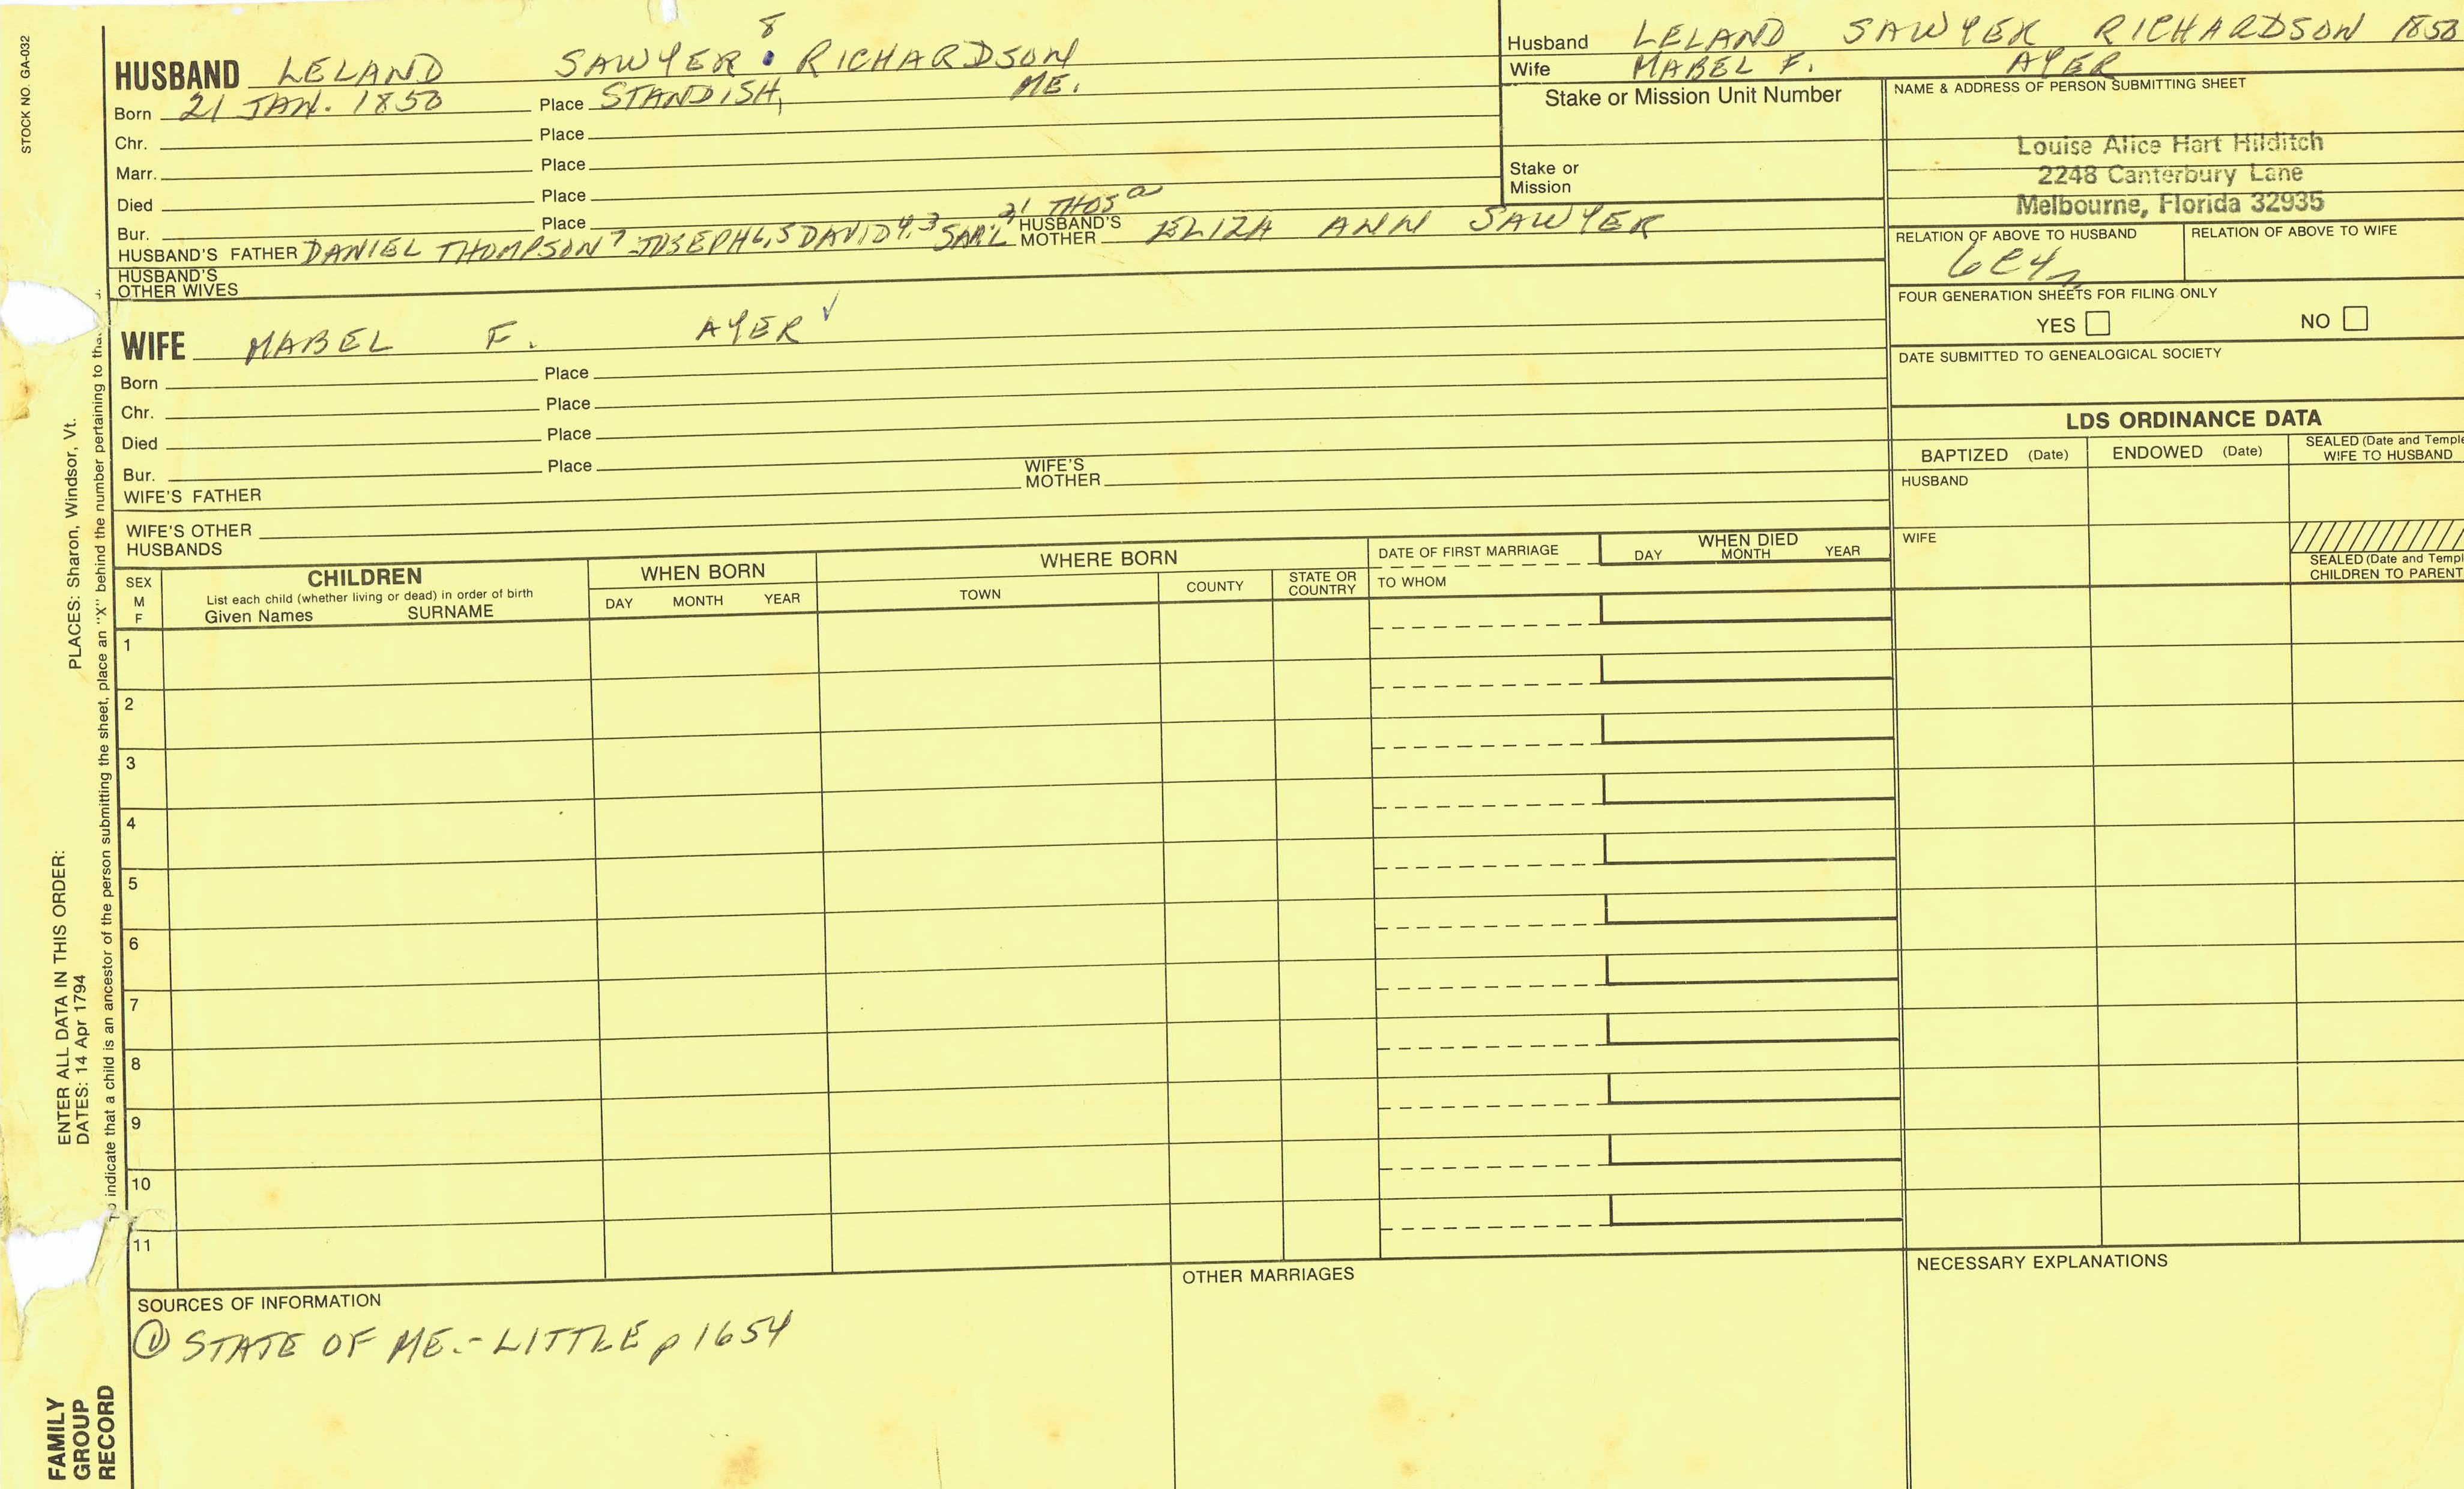 STOCK NO. GA-032
8
HUSBAND LELAND SAWYER RICHARDSON
Born 21 JAN. 1850 Place STANDISH, ME.
Chr. Place
Marr. Place
Died Place
Bur. Place
2 1 THOS
HUSBAND'S FATHER DANIEL THOMPSON 7 JOSEPH 6,5 DAVID 4,3 SAM'L HUSBAND'S MOTHER ELIZA ANN SAWYER
HUSBAND'S OTHER WIVES
WIFE MABEL F. AYER ✓
Born Place
Chr. Place
Died Place
Bur. Place
WIFE'S FATHER WIFE'S MOTHER
WIFE'S OTHER HUSBANDS
Husband LELAND SAWYER RICHARDSON 1850
Wife MABEL F. AYER
Stake or Mission Unit Number
Stake or Mission
NAME & ADDRESS OF PERSON SUBMITTING SHEET
Louise Alice Hart Hilditch
2248 Canterbury Lane
Melbourne, Florida 32935
RELATION OF ABOVE TO HUSBAND RELATION OF ABOVE TO WIFE
6C4r
FOUR GENERATION SHEETS FOR FILING ONLY
YES NO
DATE SUBMITTED TO GENEALOGICAL SOCIETY
LDS ORDINANCE DATA
BAPTIZED (Date) ENDOWED (Date) SEALED (Date and Temple
WIFE TO HUSBAND
HUSBAND
WIFE
SEALED (Date and Templ
CHILDREN TO PARENT
SEX
M
F
CHILDREN
List each child (whether living or dead) in order of birth
Given Names SURNAME
WHEN BORN
DAY MONTH YEAR
WHERE BORN
TOWN COUNTY STATE OR COUNTRY
DATE OF FIRST MARRIAGE
TO WHOM
WHEN DIED
DAY MONTH YEAR
1
2
3
4
5
6
7
8
9
10
11
SOURCES OF INFORMATION
① STATE OF ME. - LITTLE p 1654
OTHER MARRIAGES
NECESSARY EXPLANATIONS
ENTER ALL DATA IN THIS ORDER:
DATES: 14 Apr 1794
PLACES: Sharon, Windsor, Vt.
indicate that a child is an ancestor of the person submitting the sheet, place an "X" behind the number pertaining to tha
FAMILY
GROUP
RECORD